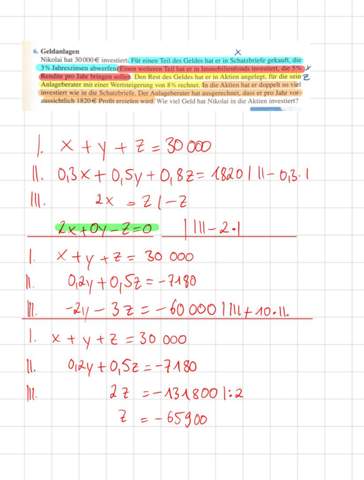 x
6. Geldanlagen
Nikolai hat 30 000 € investiert. Für einen Teil des Geldes hat er in Schatzbriefe gekauft, die
3% Jahreszinsen abwerfen. Einen weiteren Teil hat er in Immobilienfonds investiert, die 5% y
Rendite pro Jahr bringen sollen. Den Rest des Geldes hat er in Aktien angelegt, für die sein z
Anlageberater mit einer Wertsteigerung von 8% rechnet. In die Aktien hat er doppelt so viel
investiert wie in die Schatzbriefe. Der Anlageberater hat ausgerechnet, dass er pro Jahr vor-
aussichtlich 1820 € Profit erzielen wird. Wie viel Geld hat Nikolai in die Aktien investiert?
I. x + y + z = 30 000
II. 0,3x + 0,5y + 0,8z = 1820 | II - 0,3·I
III. 2x = z | -z
2x + 0y - z = 0 | III - 2·I
I. x + y + z = 30 000
II. 0,2y + 0,5z = -7180
III. -2y - 3z = -60 000 | III + 10·II
I. x + y + z = 30 000
II. 0,2y + 0,5z = -7180
III. 2z = -131800 | :2
z = -65900